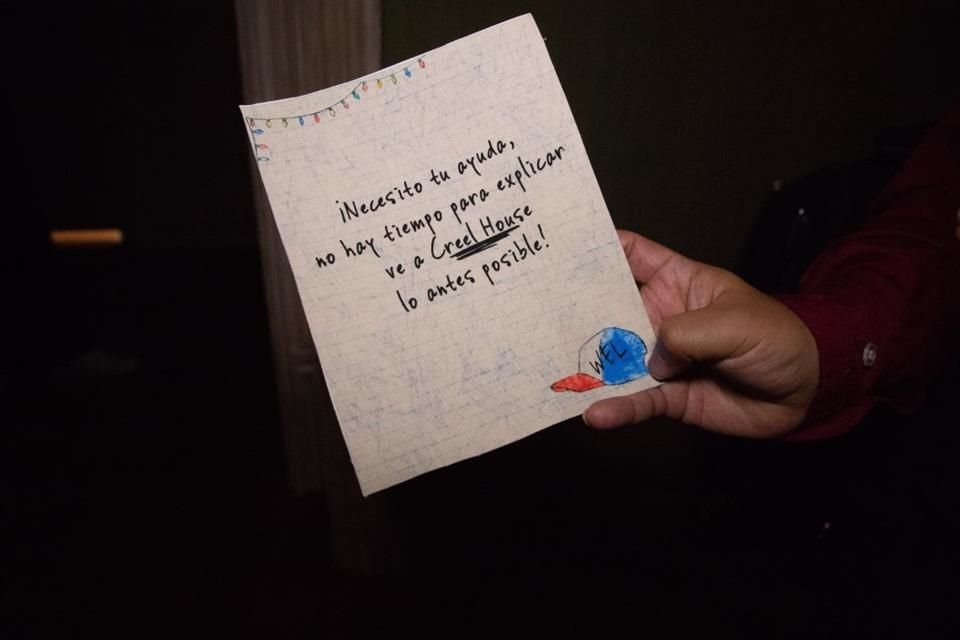 ¡Necesito tu ayuda,
no hay tiempo para explicar
ve a Creel House
lo antes posible!
WEL